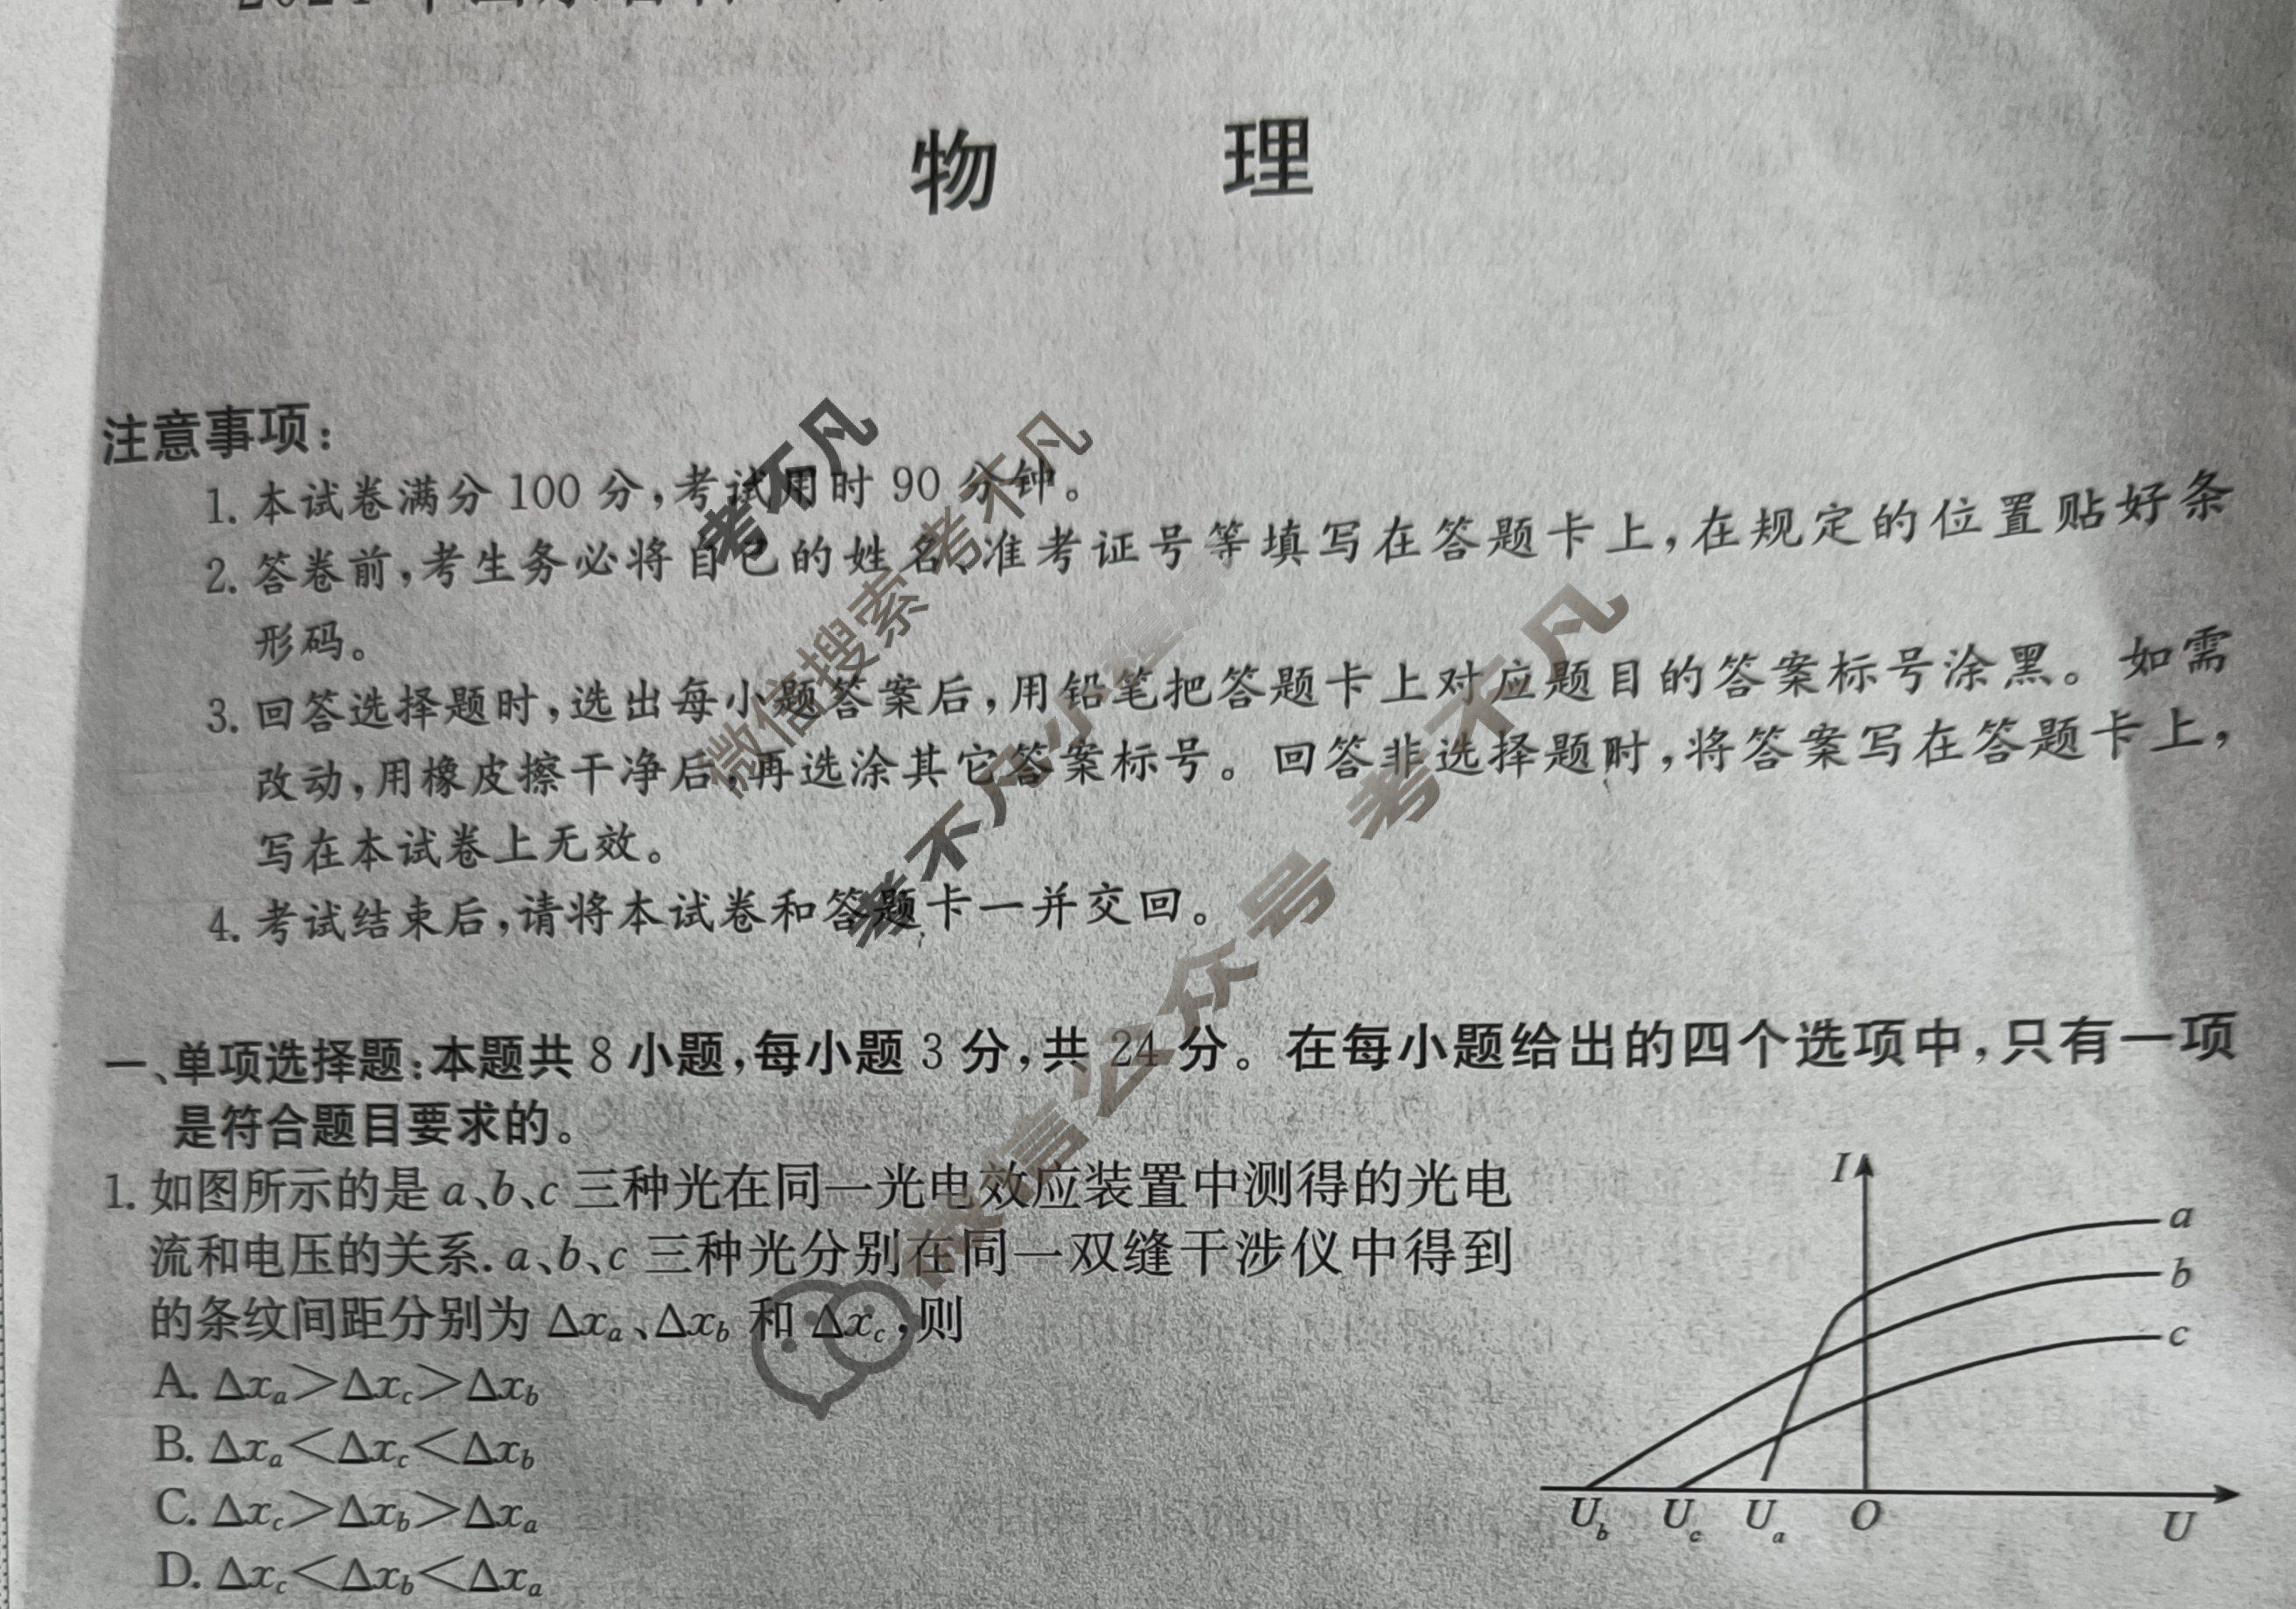 物 理
注意事项:
1. 本试卷满分 100 分,考试用时 90 分钟。
2. 答卷前,考生务必将自己的姓名、准考证号等填写在答题卡上,在规定的位置贴好条
形码。
3. 回答选择题时,选出每小题答案后,用铅笔把答题卡上对应题目的答案标号涂黑。如需
改动,用橡皮擦干净后,再选涂其它答案标号。回答非选择题时,将答案写在答题卡上,
写在本试卷上无效。
4. 考试结束后,请将本试卷和答题卡一并交回。
一、单项选择题:本题共 8 小题,每小题 3 分,共 24 分。在每小题给出的四个选项中,只有一项
是符合题目要求的。
1. 如图所示的是 a、b、c 三种光在同一光电效应装置中测得的光电
流和电压的关系. a、b、c 三种光分别在同一双缝干涉仪中得到
的条纹间距分别为 Δxₐ、Δx_b 和 Δx_c,则
A. Δxₐ>Δx_c>Δx_b
B. Δxₐ<Δx_c<Δx_b
C. Δx_c>Δx_b>Δxₐ
D. Δx_c<Δx_b<Δxₐ
I
a
b
c
U_b U_c Uₐ O U
考不凡
微信搜索 考不凡
考不凡小程序
微信公众号 考不凡